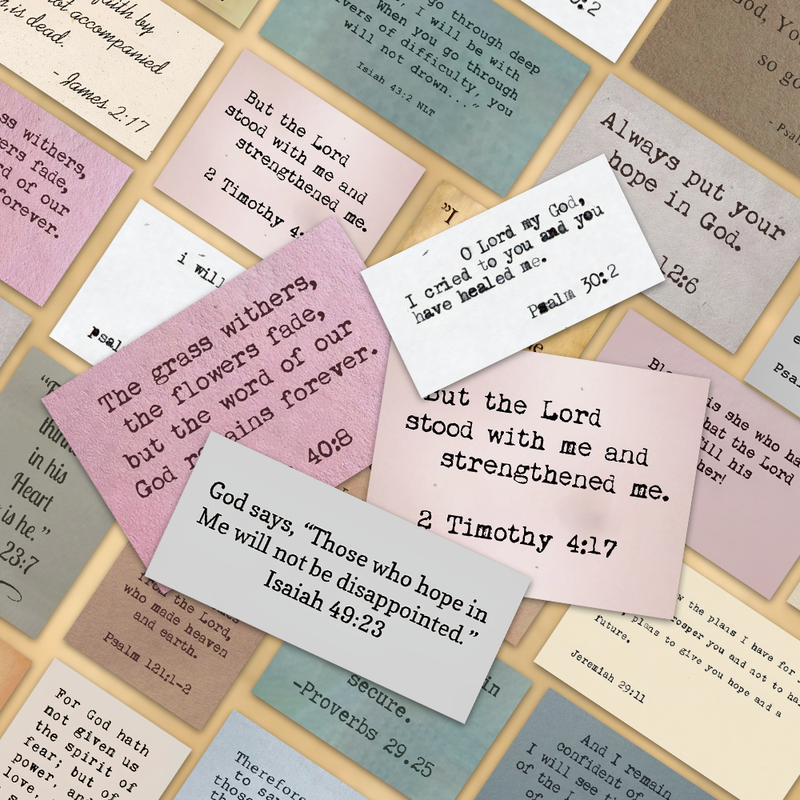 faith by
not accompanied
, is dead.
- James 2:17
go through deep
, I will be with
When you go through
vers of difficulty, you
will not drown..."
Isaiah 43:2 NLT
0:2
God, Yo
so go
- Psal
ss withers,
ers fade,
rd of our
forever.
But the Lord
stood with me and
strengthened me.
2 Timothy 4:
Always put your
hope in God.
12:6
i will
psal
O Lord my God,
I cried to you and you
have healed me.
Psalm 30:2
The grass withers,
the flowers fade,
but the word of our
God remains forever.
40:8
But the Lord
stood with me and
strengthened me.
2 Timothy 4:17
is she who ha
hat the Lord
ill his
her!
Psa
in his
Heart
is he."
23:7
God says, “Those who hope in
Me will not be disappointed.”
Isaiah 49:23
the
who made heaven
and earth.
Psalm 121:1-2
in
secure.
-Proverbs 29.25
w the plans I have for
rosper you and not to ha
plans to give you hope and a
future.
Jeremiah 29:11
For God hath
not given us
the spirit of
fear; but of
power, an
love,
Therefore
to sa
those
And I remain
confident of
I will see t
of the L